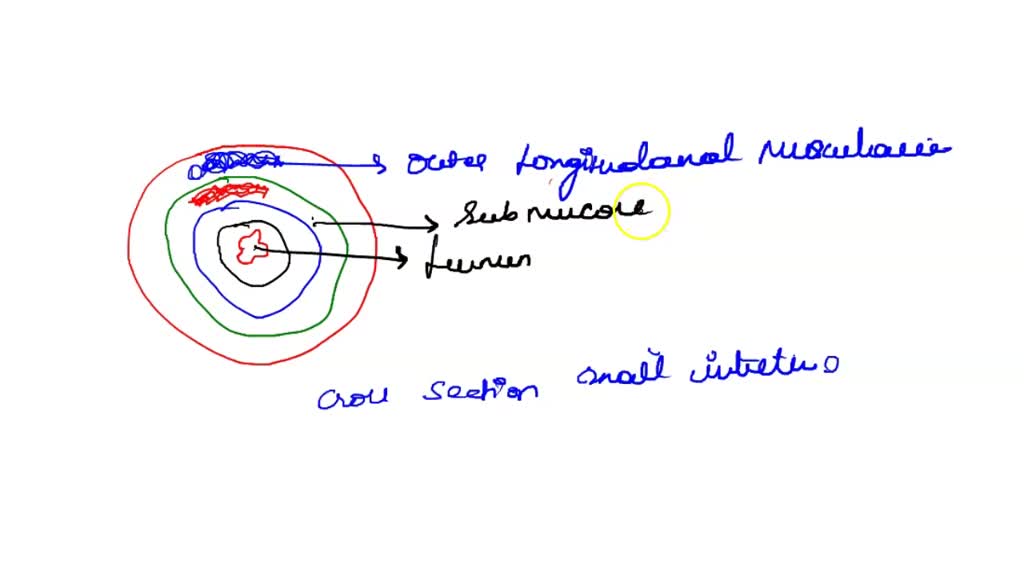 Outer Longitudanal Muscularis
Submucosa
Lumen
Cross section small intetin